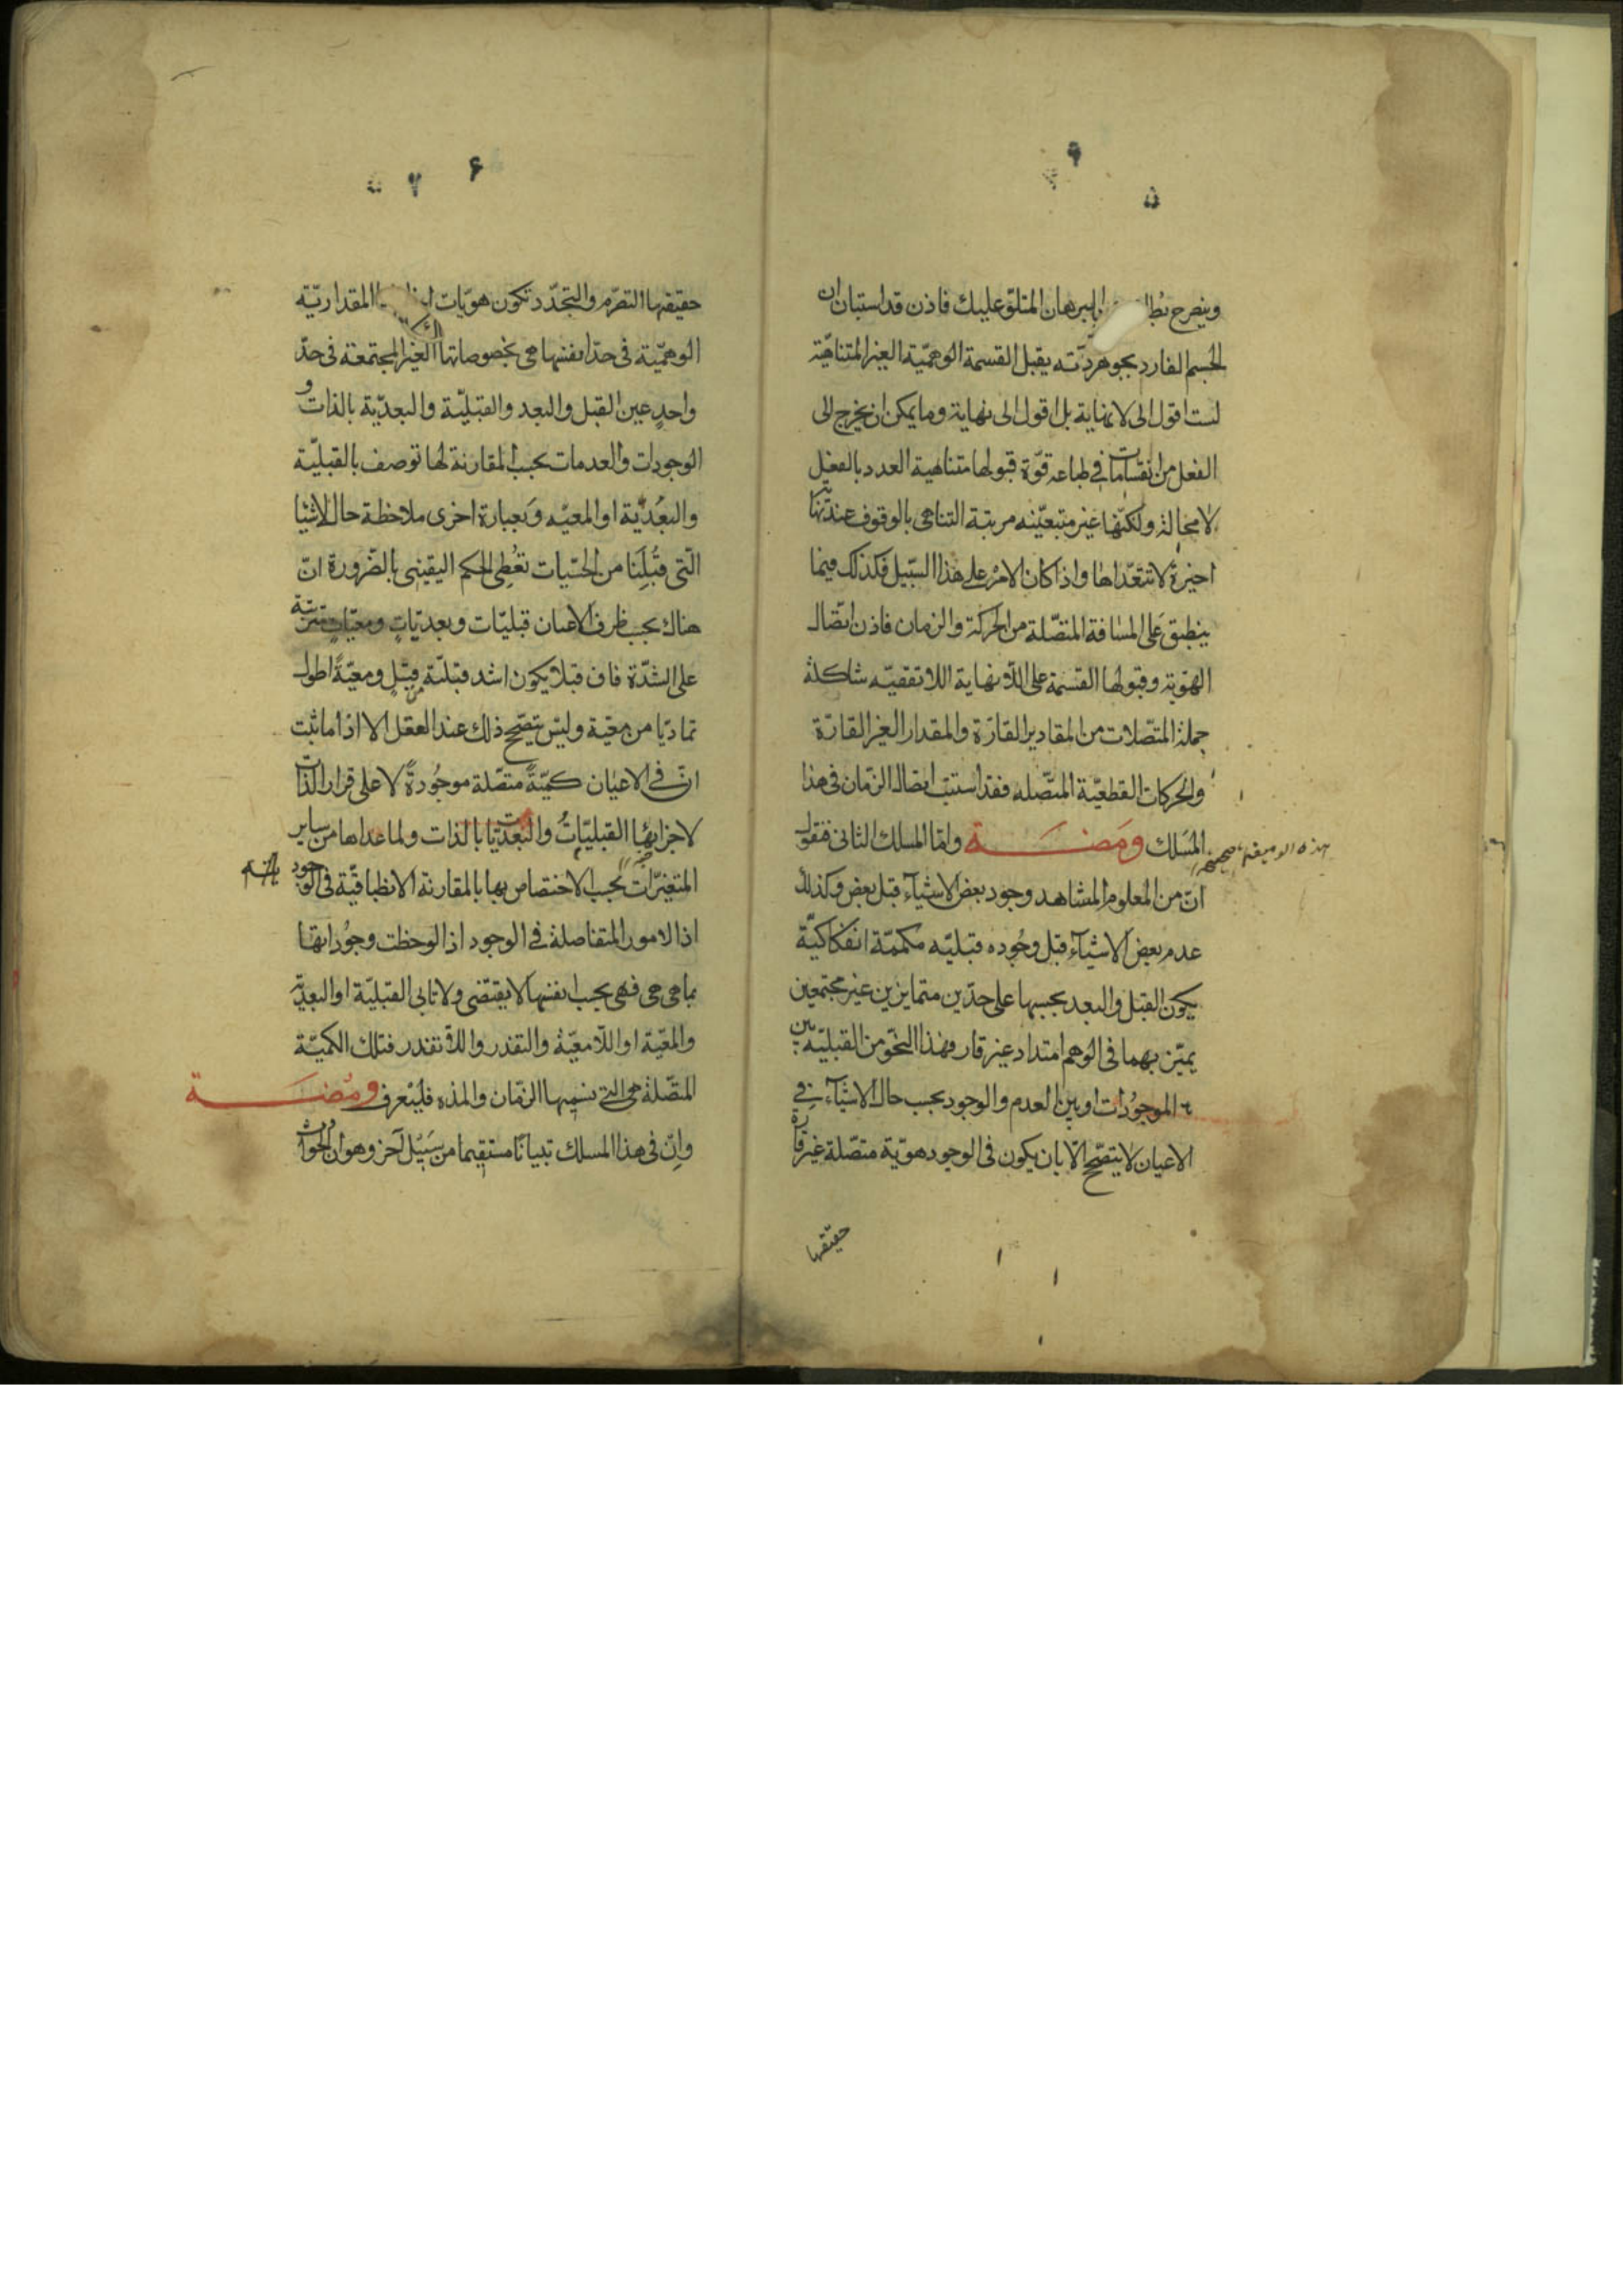 وينصرح بالبرهان المتلوّ عليك فاذن قد استبان ان
الجسم الفارد بجوهريّته يقبل القسمة الوهميّة الغير المتناهية
لست اقول الى لا نهاية بل اقول الى نهاية وما يمكن ان يخرج الى
الفعل من انقسامات في طباعه قوّة قبولها متناهية العدد بالفعل
لا محالة ولكنّها غير متعيّنه مرتبة التناهي بالوقوف عند
اخيرة لا تتعدّاها واذا كان الامر على هذا السّبيل فكذلك فيما
ينطبق على المسافة المتّصلة من الحركة والزمان فاذن اتّصال
الهويّة وقبولها القسمة على اللّانهاية اللاتقفيّه شاكلة
جملة المتّصلات من المقادير القارّة والمقدار الغير القارّة
والحركات القطعيّة المتّصله فقد استتبّ اتصال الزّمان في هذا
المسلك ومضة وامّا المسلك الثاني فنقول
هذه الوميضة صحيحة
انّ من المعلوم المشاهد وجود بعض الاشيآء قبل بعض وكذلك
عدم بعض الاشيآء قبل وجوده قبليّه مكممّة انفكاكيّة
يكون القبل والبعد بحسبها على حدّين متمايزين غير مجتمعين
يميّز بهما في الوهم امتداد غير قار فهذا النحو من القبليّه بين
الموجودات او بين العدم والوجود بحسب حال الاشيآء في
الاعيان لا يتصحّح الّا بان يكون في الوجود هويّة متصّلة غير قارّة
حقيقتها
حقيقتها التصرّم والتجدّد تكون هويّات المقداريّة
الوهميّة في حدّ انفسها هي بخصوصاتها الغير المجتمعة في حدّ
واحد عين القبل والبعد والقبليّة والبعديّة بالذات و
الوجودات والعدمات بحسب المقارنة لها توصف بالقبليّة
والبعديّة او المعيّه وبعبارة اخرى ملاحظة حال الاشيا
الّتي قبلنا من الحسّيات تعطي الحكم اليقيني بالضّرورة انّ
هناك بحسب ظرف الاعيان قبليّات وبعديّات ومعيّات مترتّبة
على الشدّة فان قبلا يكون اشد قبليّة من قبل ومعيّةً اطول
تماديّا من معيّة وليس يتصحّح ذلك عند العقل الا اذا ما ثبت
انّ في الاعيان كميّةً متصّلة موجودةً لا على قرار الذّات
لاجزائها القبليّات والبعديّات بالذات ولما عداها من ساير
المتغيّرات بحسب الاختصاص بها بالمقارنة الانطباقيّة في الوجود
اذ الامور المتفاصلة في الوجود اذا لوحظت وجوداتها
بما هي هي فهي بحسب انفسها لا يقتضي ولا تابى القبليّة او البعديّة
والمعيّة او اللّامعيّة والتقدر واللّاتقدر فتلك الكميّة
المتّصلة هي الّتي نسميها الزّمان والمدّه فليعرف ومضة
وانّ في هذا المسلك تبيانًا مستقيما من سبيل آخر وهو ان الحوادث